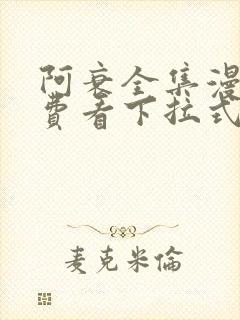 阿衰全集漫
费看下拉式
麦克米倫